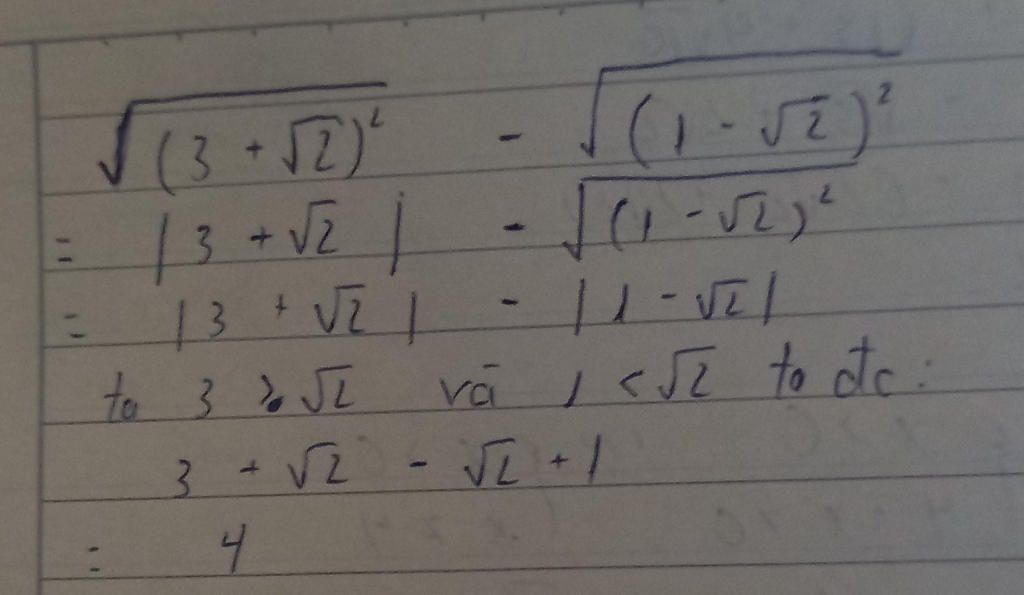 √(3 + √2)² - √(1 - √2)²
= |3 + √2| - √(1 - √2)²
= |3 + √2| - |1 - √2|
ta 3 > √2 và 1 < √2 ta đc :
3 + √2 - √2 + 1
= 4